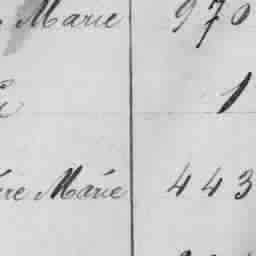 Marie 970
1
re Marie 443